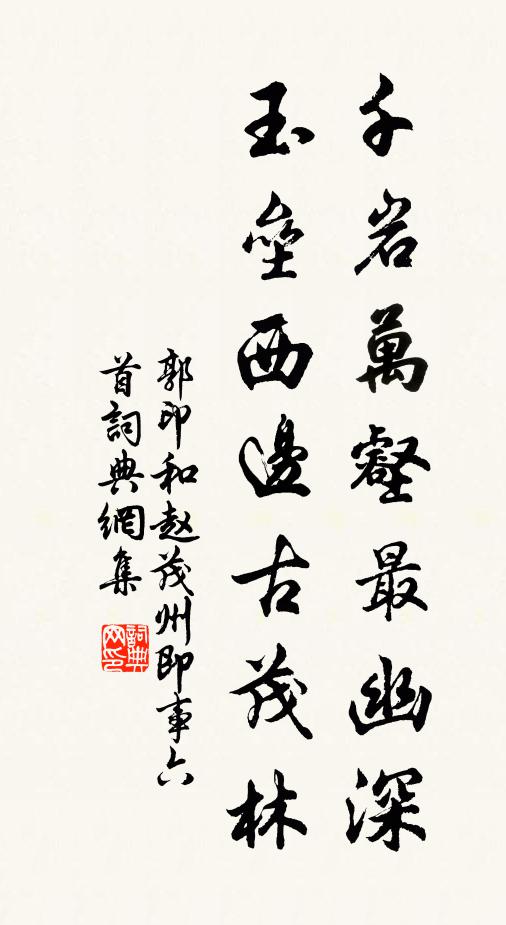 千岩萬壑最幽深
玉壘西邊古茂林
郭印和赵茂州即事六
首詞典網集
詞典
网印